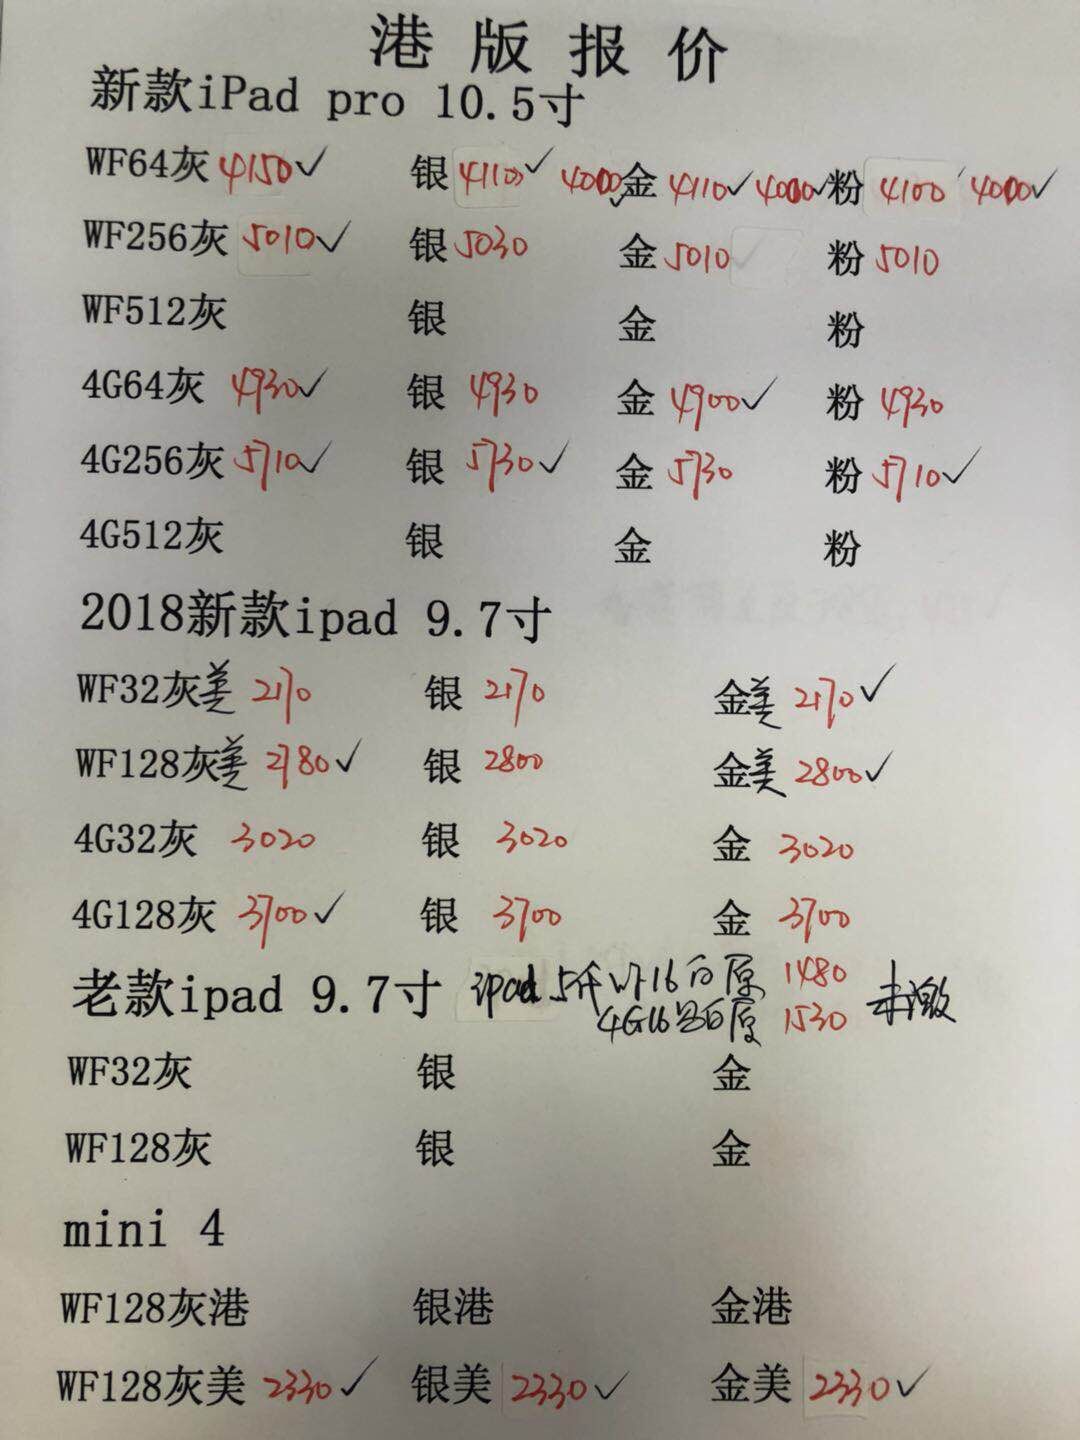 港版报价
新款iPad pro 10.5寸
WF64灰 4150✓ 银 4110✓ 4000✓ 金 4110✓ 4000✓ 粉 4100 4000✓
WF256灰 5010✓ 银 5030 金 5010 粉 5010
WF512灰 银 金 粉
4G64灰 4930✓ 银 4930 金 4900✓ 粉 4930
4G256灰 5710✓ 银 5730✓ 金 5730 粉 5710✓
4G512灰 银 金 粉
2018新款ipad 9.7寸
WF32灰美 2170 银 2170 金美 2170✓
WF128灰美 2780✓ 银 2800 金美 2800✓
4G32灰 3020 银 3020 金 3020
4G128灰 3700✓ 银 3700 金 3700
老款ipad 9.7寸 ipad 5 WF16白原 1480 未激
4G16 白原 1530
WF32灰 银 金
WF128灰 银 金
mini 4
WF128灰港 银港 金港
WF128灰美 2330✓ 银美 2330✓ 金美 2330✓